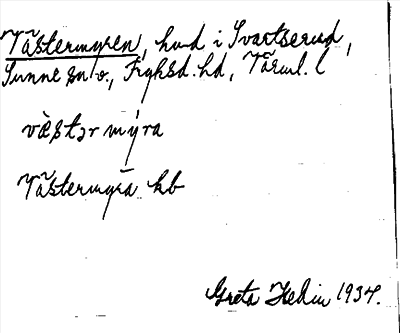 Västermyren, hmd i Svartserud,
Sunne sn o., Fryksd. hd, Värml. l
væstərmýra
Västermyra kb
Greta Hedin 1934.